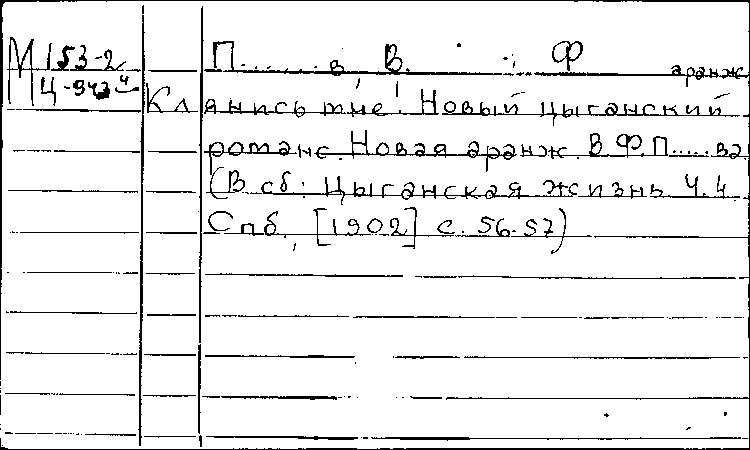 М 153-2
Ц-943 ч
П.......в, В. Ф
аранж
Клянись мне! Новый цыганский
романс. Новая аранж. В.Ф.П.....ва
(В сб: Цыганская жизнь. Ч.4.
Спб., [1902] с. 56-57)